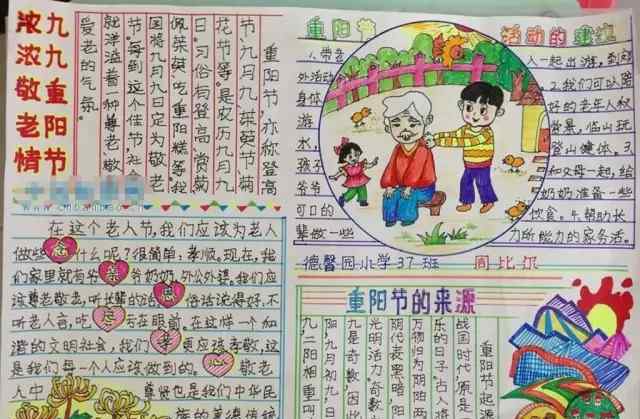 九九重阳节
浓浓敬老情
重阳节,亦称登高
节、九月九、茱萸节、菊
花节等。是农历九月九
日。习俗有登高、赏菊、
佩茱萸、吃重阳糕等。我
国将九月九日定为敬老
节。每到这个佳节社
就洋溢着一种尊老、敬
爱老的气氛。
重阳节
活动的建议
1.带老
外活动
身体
游
水,
孩子
爷爷
可口的
辈做一些
人一起出游。到
2.我们可以陪
好的老年人秋
登景,临山玩
登山健体。3.
和父母一起,给
奶奶准备一些
饮食。4.帮助长
力所能力的家务活。
德馨园小学37班 周比尔
在这个老人节,我们应该为老人
做些什么呢?很简单:孝顺。现在,我
们家里就有爷爷奶奶,外公外婆。我们应
该尊老敬老,听长辈的话。俗话说得好,不
听老人言,吃亏在眼前。在这样一个和
谐的文明社会,我们更应该孝敬,这
是我们每一个人应该做到的。敬老
人中
尊贤也是我们中华民
族的美德传统
念
亲
恩
孝
心
重阳节的来源
重阳节起
战国时代,原是
乐的日子。古人
万物归为阴阳两
阴代表黑暗,阳
光明活力。奇数
九是奇数,因此
阳,九月初九日
九二阳相重叫